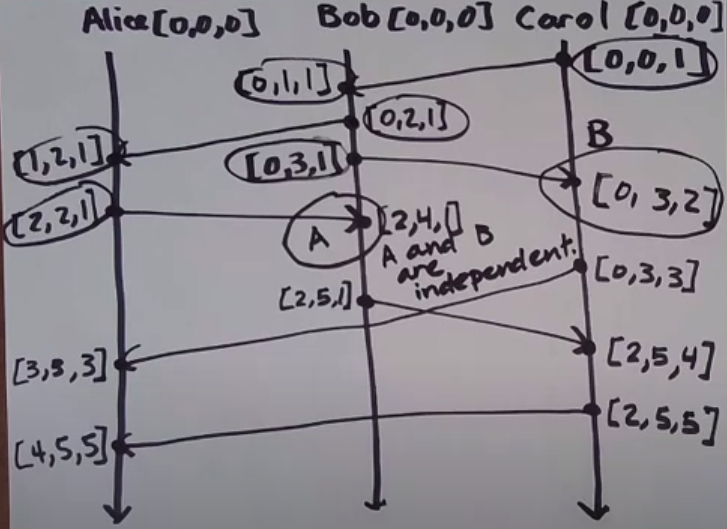 Alice [0,0,0] Bob [0,0,0] Carol [0,0,0]
[0,0,1]
[0,1,1]
[0,2,1]
B
[1,2,1]
[0,3,1]
[0,3,2]
[2,2,1]
A
[2,4,1]
A and B
are
independent.
[0,3,3]
[2,5,1]
[3,3,3]
[2,5,4]
[2,5,5]
[4,5,5]